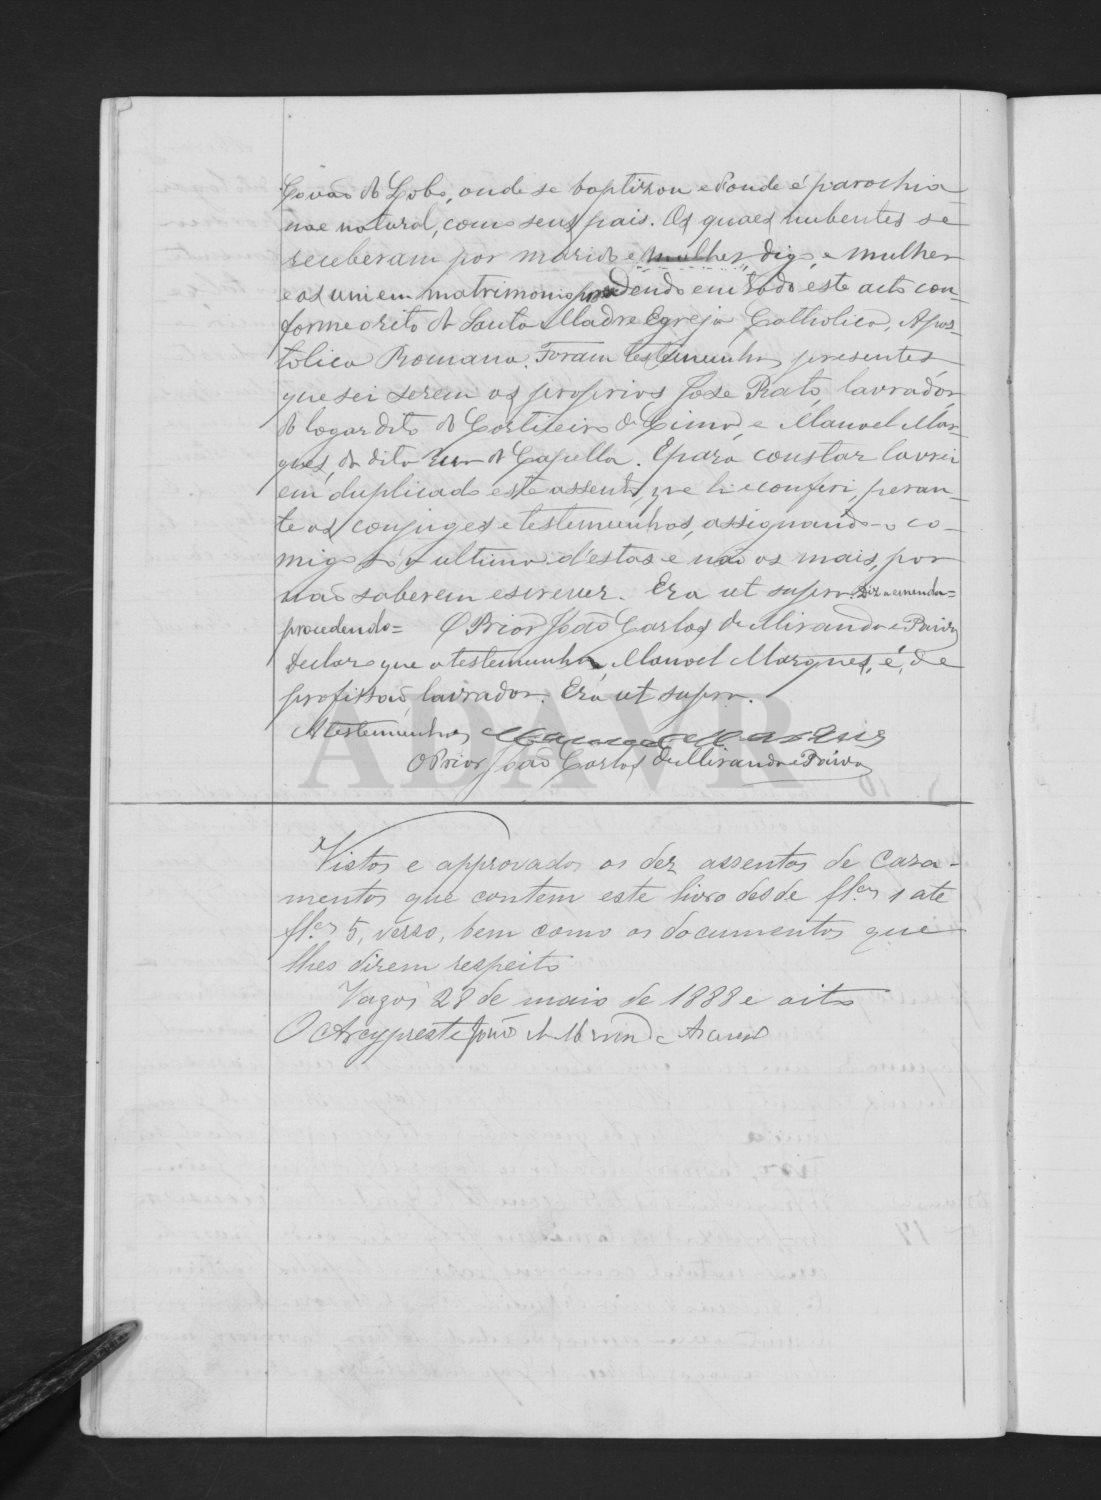 Covão do Lobo, onde se baptizou e donde é parochia-
na e natural, como seus pais. Os quaes nubentes se
receberam por marido e mulher, digo, e mulher
e os uni em matrimonio procedendo em todo este acto con-
forme o rito da Santa Madre Egreja Catholica, Apos-
tolica Romana. Foram testemunhas presentes
que sei serem os proprios José Rato, lavrador,
do logar dito de Corticeiro de Cima, e Manoel Mar-
ques, do dito da Capella. E para constar lavrei
em duplicado este assento, que li e conferi, peran-
te os conjuges e testemunhas, assignando-o co-
migo só o ultimo d'estas e não os mais, por
não saberem escrever. Era ut supra. Diz a emenda=
procedendo= O Prior João Carlos de Miranda e Paiva
Declaro que a testemunha, Manoel Marques, é, de
profissão, lavrador. Era ut supra.
A testemunha, Manoel Marques
O Prior João Carlos de Miranda e Paiva
ADAVR
Vistos e approvados os dez assentos de Casa-
mentos que contem este livro desde fl.as 1 ate
fl.as 5, verso, bem como os documentos que
lhes dizem respeito
Vagos 28 de maio de 1888 e oito
O Arcypreste João